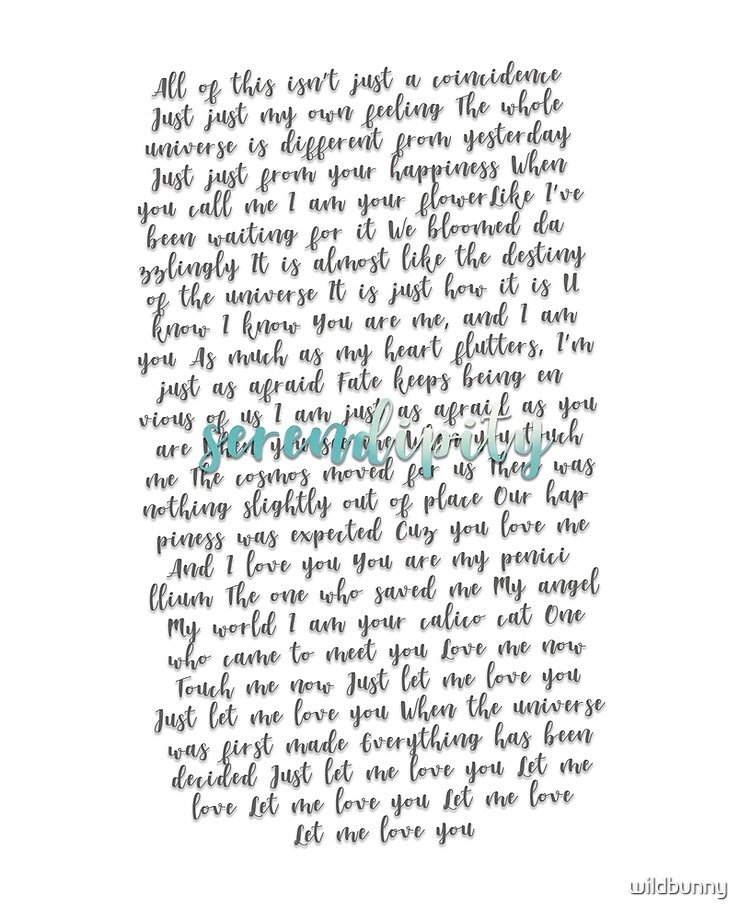 All of this isn't just a coincidence
Just just my own feeling The whole
universe is different from yesterday
Just just from your happiness When
you call me I am your flowerLike I've
been waiting for it We bloomed da
zzlingly It is almost like the destiny
of the universe It is just how it is U
know I know You are me, and I am
you As much as my heart flutters, I'm
just as afraid Fate keeps being en
vious of us I am just as afraid as you
serendipity
are When you see me When you touch
me The cosmos moved for us There was
nothing slightly out of place Our hap
piness was expected Cuz you love me
And I love you You are my penici
llium The one who saved me My angel
My world I am your calico cat One
who came to meet you Love me now
Touch me now Just let me love you
Just let me love you When the universe
was first made Everything has been
decided Just let me love you Let me
love Let me love you Let me love
Let me love you
wildbunny